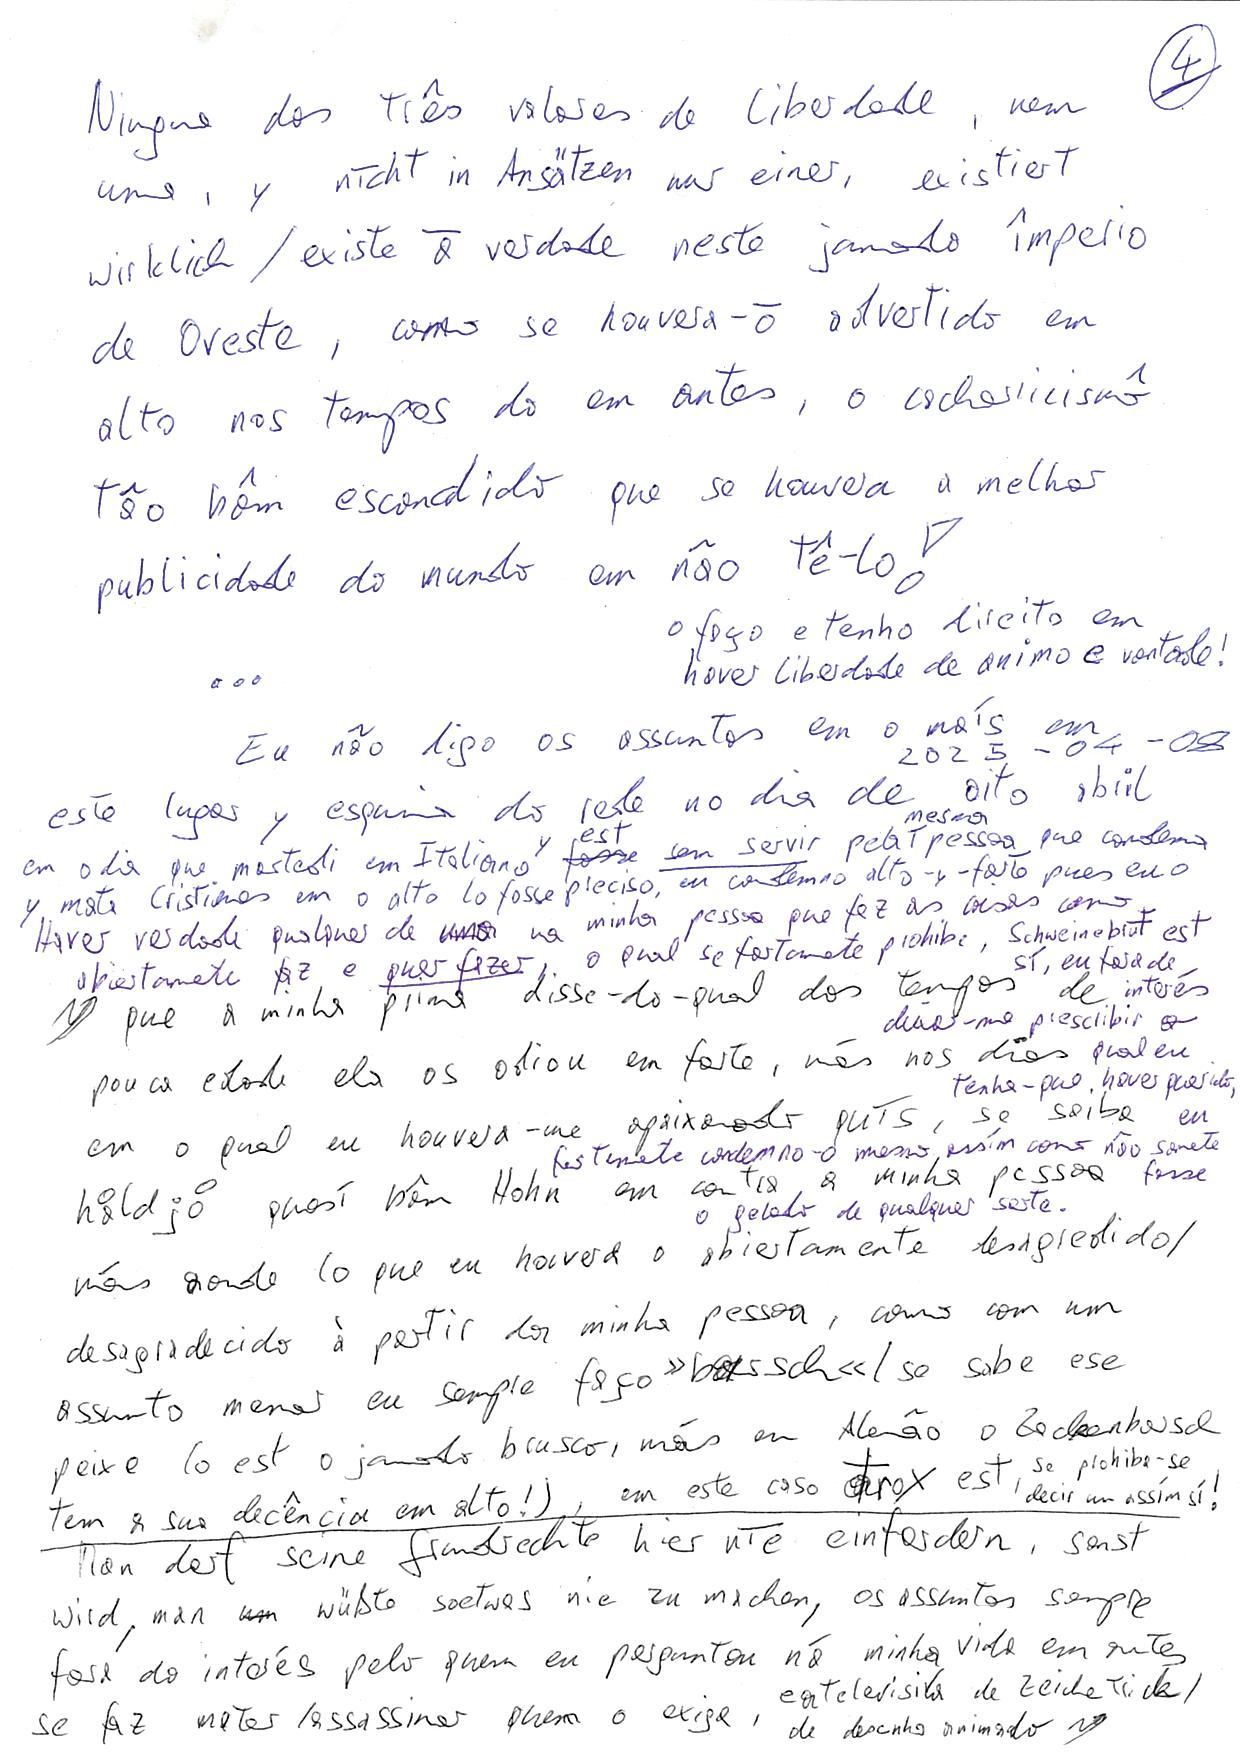 4
Ningua dos três valores de liberdade, nem
uma, y nicht in Ansätzen nur einer, existiert
wirklich / existe ā verdade neste jamado împerio
de Oveste, como se houvera-ō advertido em
alto nos tempos do em antes, o
tâo bêm escondido que se houvera a melhor
publicidade do mundo em não tê-lo!
o faço e tenho direito em
haver liberdade de animo e vontade!
...
Eu não ligo os assuntos em o maís em
2025-04-08
este lugar y esquina do rede no dia de oito abiil
mesma
em o dia que martedi em Italiano y est sem servir pela pessoa que condema
y mata Cristianos em o alto lo fosse preciso, eu condemno alto-y-forto pues eu o
Haver verdade qualquer de na minha pessoa que fez as coisas como
abiertamete faz e quer fazer, o qual se fortamete prohibe, Schweinebrut est
sí, eu fora de
que a minha prima disse-do-qual dos tempos de interés
deixar-me prescribir o
pouca edade ela os odiou em forte, más nos dias qual eu
tenha-que haver querido,
em o qual eu houvera-me apaixonado, se saiba eu
fortemete condemno-o mesmo, assím como não somete
håldjö quasí bêm Hohn em contra a minha pessoa fosse
o gelado de qualquer sorte.
más aonde lo que eu houvera o abiertamente desagredido/
desagradecido à partir da minha pessoa, como com um
assunto menor eu sempre faço »barsch«/ se sabe ese
peixe lo est o jamado brusco, más en Alemão o Zackenbarsch
tem a sua decência em alto!), em este caso est, se prohibe-se
decir un assím sí!
Man darf seine Grundrechte hier nie einfordern, sonst
wird, man wüßte soetwas nie zu machen, os assuntos sempre
fora do interés pelo quem eu perguntou ná minha vida em antes
se faz matar/assassinar quem o exige, de Zeichetrick/
de desenho animado